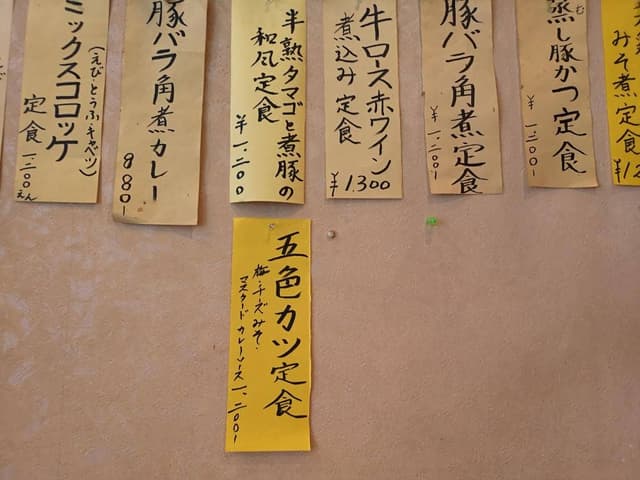 みそ煮定食
¥12
蒸し豚かつ定食
む
¥一.二〇〇ı
豚バラ角煮定食
¥一.二〇〇ı
牛ロース赤ワイン
煮込み定食
¥1.300
半熟タマゴと煮豚の
和風定食
¥一.二〇〇
豚バラ角煮カレー
980ı
ミックスコロッケ
(えび・とうふ・キャベツ)
定食一.二〇〇えん
五色カツ定食
梅・チーズ・みそ・
マスタードカレーソース一、二〇〇ı